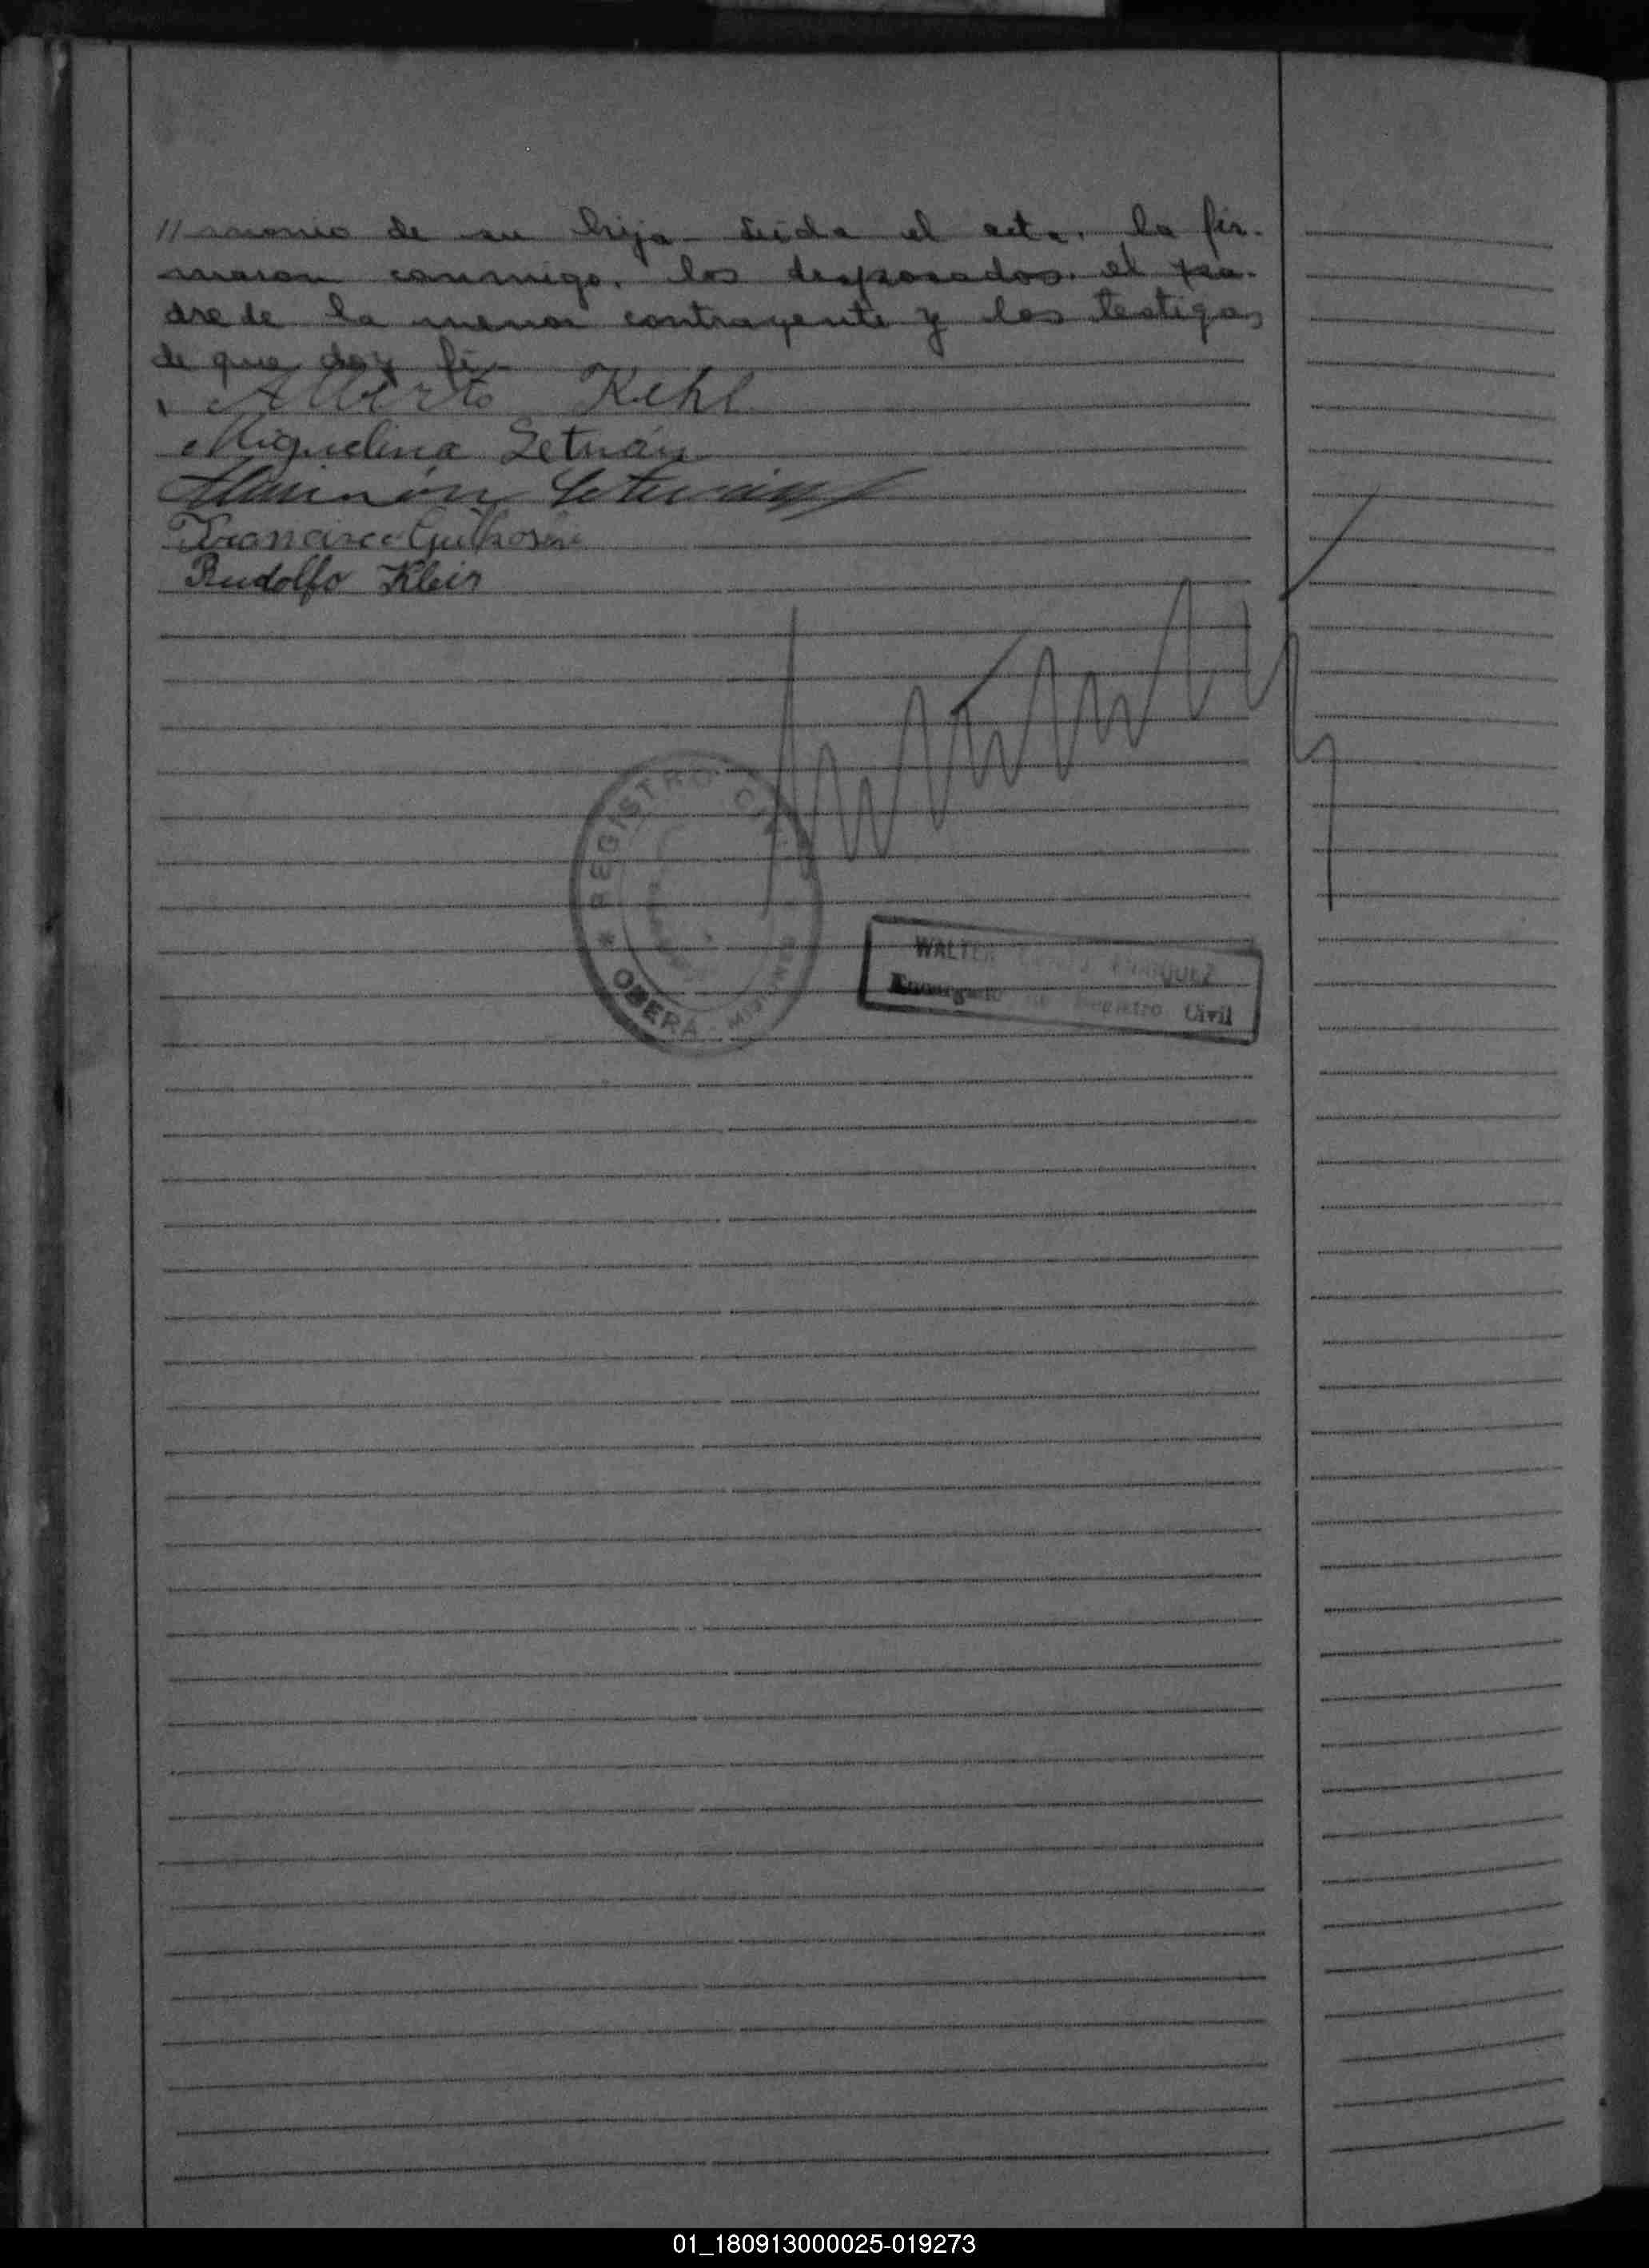 // monio de su hija - Leida el acta, la fir-
maron conmigo, los desposados, el pa-
dre de la menor contrayente y los testigos
de que doy fe -
Alberto Kehl
Miguelina Setuán
Francisco
Rudolfo Klein
REGISTRO CIVIL
* OBERÁ - MISIONES
WALTER
Encargado de Registro Civil
01_180913000025-019273